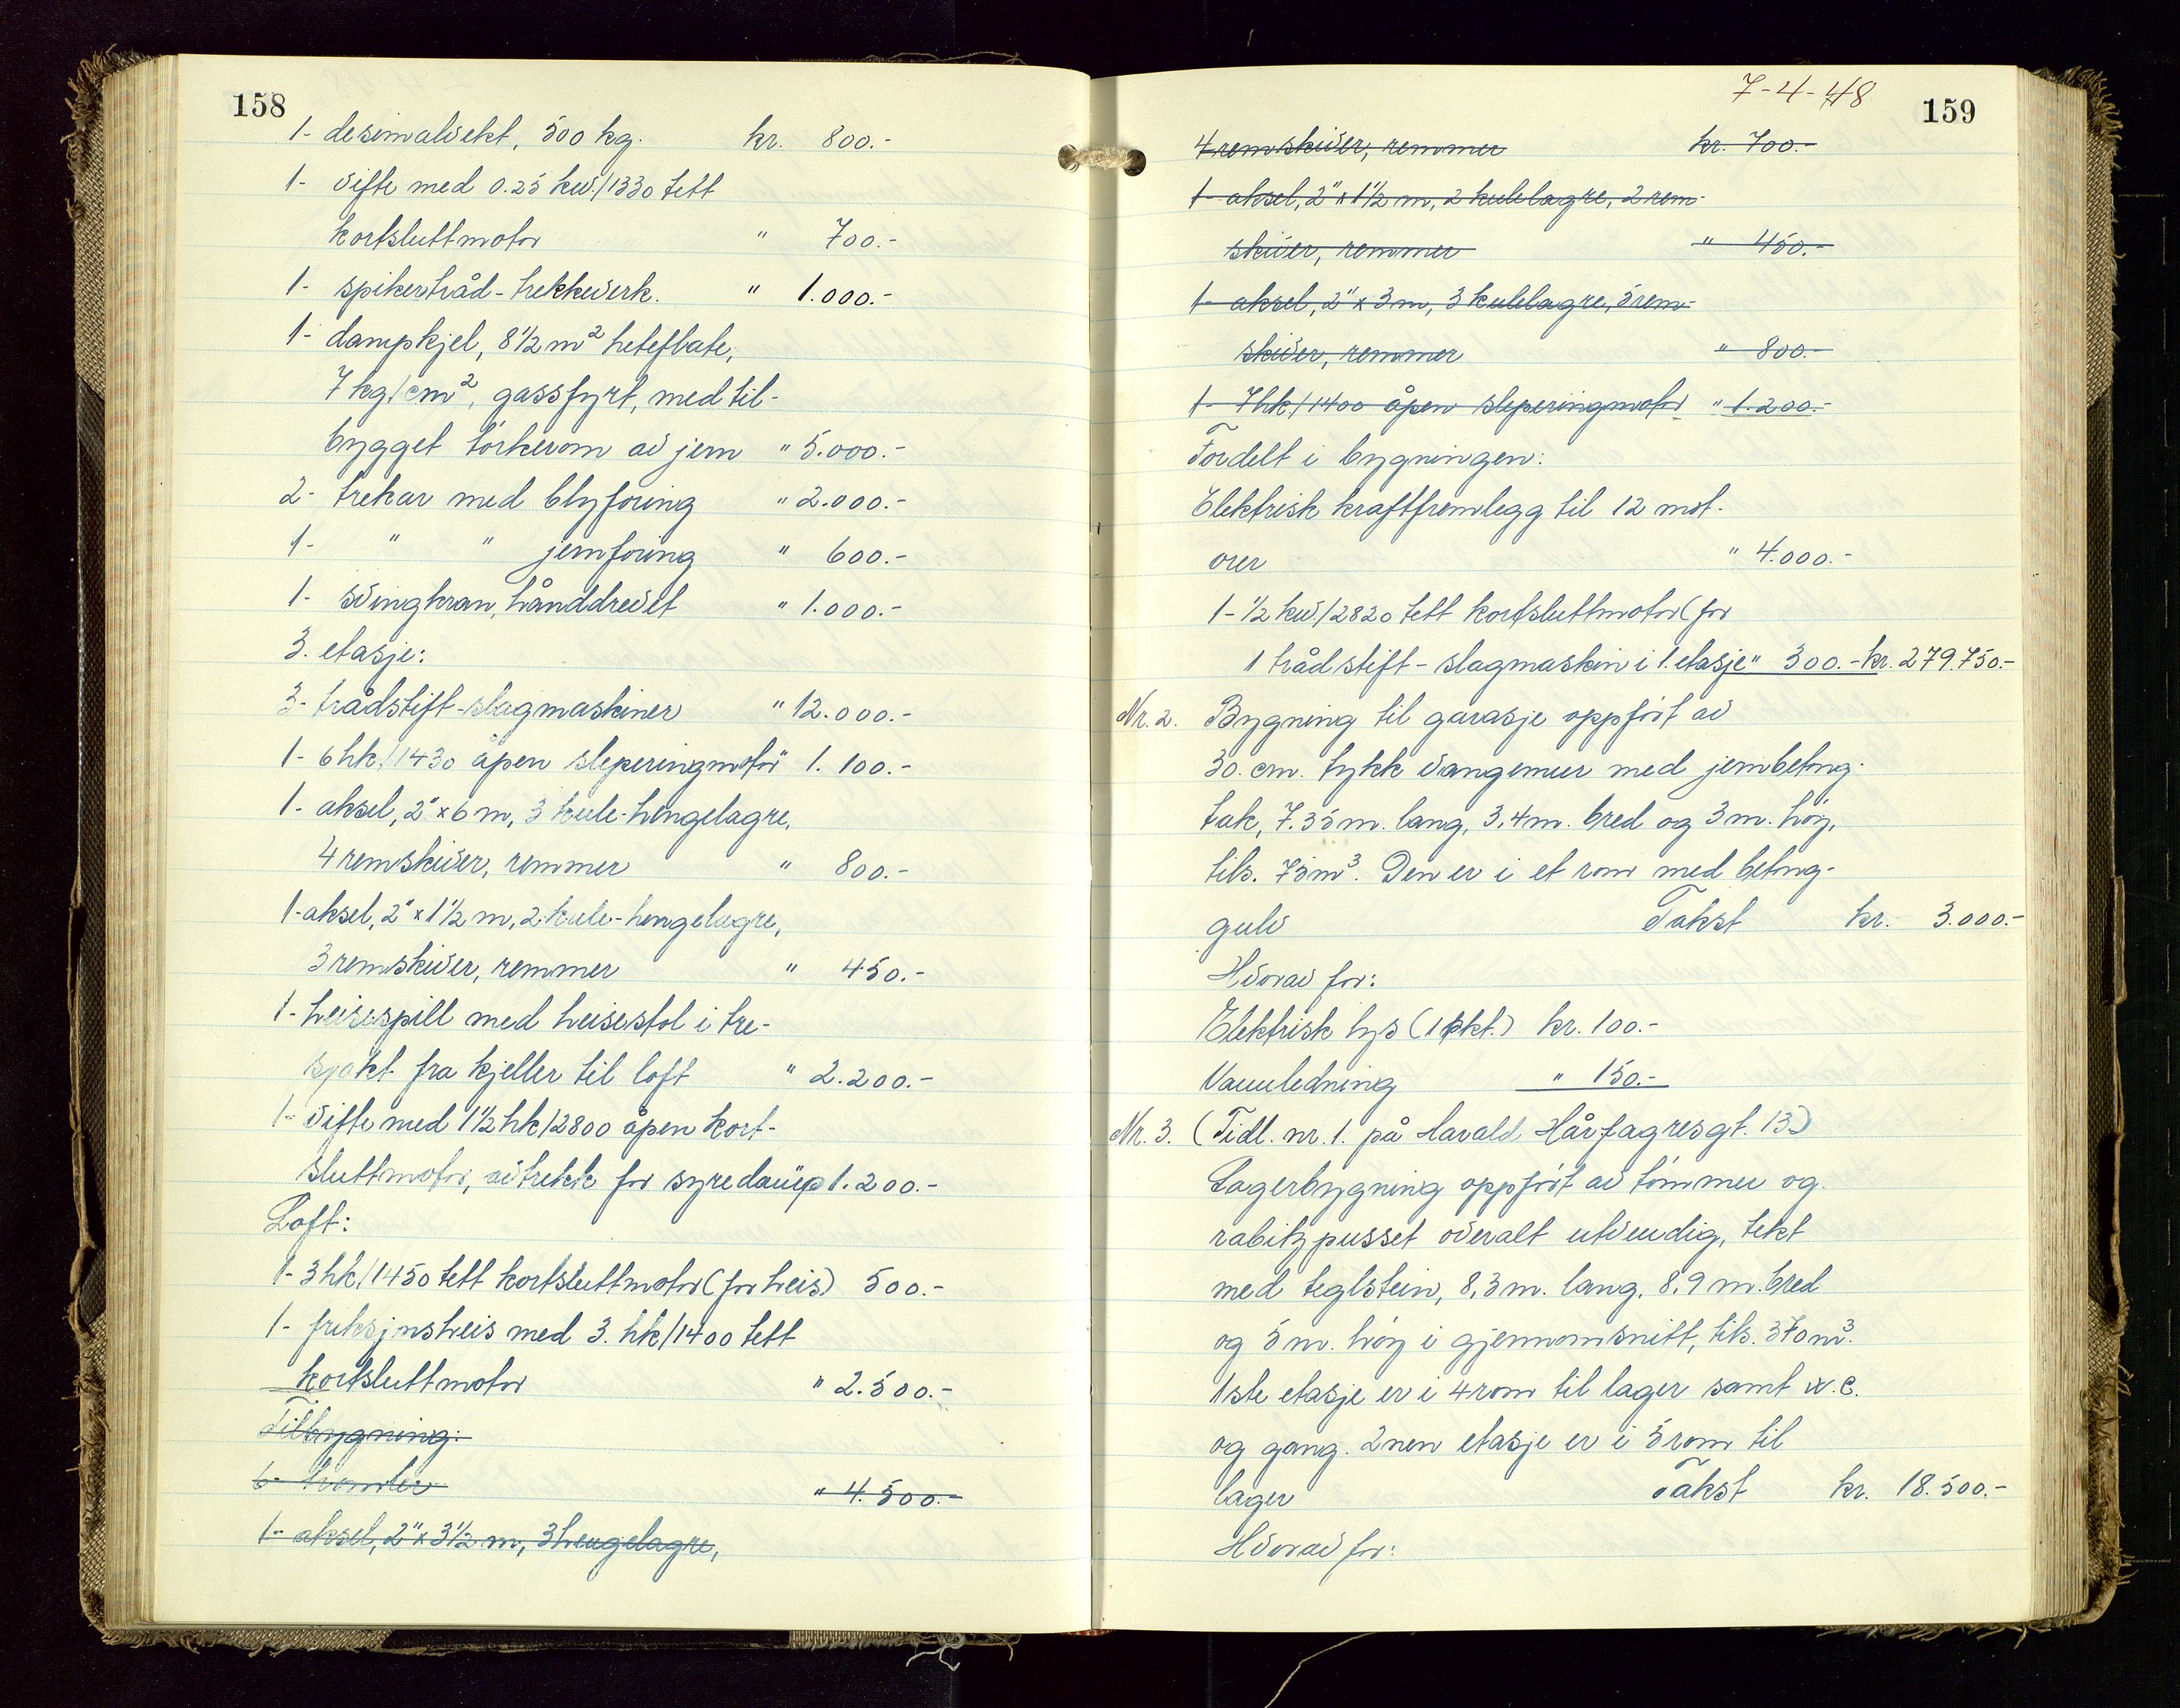 158
1- desimalvekt, 500 kg. kr. 800.-
1- vifte med 0.25 kw./1330 tett
kortsluttmotor " 700.-
1- spikertråd-trekkverk. " 1.000.-
1- dampkjel, 8 1/2 m² heteflate,
7 kg/cm², gassfyrt, med til-
bygget tørkerom av jern " 5.000.-
2- trekar med blyforing " 2.000.-
1- " " jernforing " 600.-
1- svingkran, hånddrevet " 1.000.-
3. etasje:
3- trådstift-slagmaskiner " 12.000.-
1- 6 hk./1430 åpen sleperingmotor " 1.100.-
1- aksel, 2" x 6 m, 3 kule-hengelagre,
4 remskiver, remmer " 800.-
1- aksel, 2" x 1 1/2 m, 2 kule-hengelagre,
3 remskiver, remmer " 450.-
1- heisespill med heisestol i tre-
sjakt fra kjeller til loft " 2.200.-
1- vifte med 1 1/2 hk/2800 åpen kort-
sluttmotor, avtrekk for syredamp 1.200.-
Loft:
1- 3 hk/1450 tett kortsluttmotor (for heis) 500.-
1- friksjonsheis med 3. hk/1400 tett
kortsluttmotor " 2.500.-
Tilbygning:
6- tromler " 4.500.-
1- aksel, 2" x 3 1/2 m, 3 hengelagre,
7-4-48
159
4 remskiver, remmer kr. 700.-
1- aksel, 2" x 1 1/2 m, 2 kulelagre, 2 rem-
skiver, remmer " 450.-
1- aksel, 2" x 3 m, 3 kulelagre, 5 rem-
skiver, remmer " 800.-
1- 7 hk/1400 åpen sleperingmotor " 1.200.-
Fordelt i bygningen:
Elektrisk kraftfremlegg til 12 mot-
orer " 4.000.-
1- 1/2 kw./2820 tett kortsluttmotor (for
1 trådstift-slagmaskin i 1. etasje " 300.- kr. 279.750.-
Nr. 2. Bygning til garasje oppført av
30. cm. tykk vangemur med jernbetong-
tak, 7.35 m. lang, 3,4 m. bred og 3 m. høy,
tils. 75 m³. Den er i et rom med betong-
gulv Takst kr. 3.000.-
Hvorav for:
Elektrisk lys (1 pkt.) kr. 100.-
Vannledning " 150.-
Nr. 3. (Tidl. nr. 1. på Harald Hårfagresgt. 13)
Lagerbygning oppført av tømmer og
rabitzpusset overalt utvendig, tekt
med teglstein, 8,3 m. lang, 8,9 m. bred
og 5 m. høy i gjennomsnitt, tils. 370 m³.
1ste etasje er i 4 rom til lager samt w.c.
og gang. 2nen etasje er i 5 rom til
lager Takst kr. 18.500.-
Hvorav for: